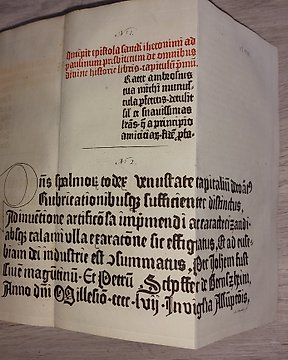 N° 1.
Incipit epistola sancti iheronimi ad
paulinum presbiterum de omnibus
divine historie libris. capitulum pmu.
Rater ambrosius
tua michi munus-
cula pferens. detulit
sil et suavissimas
lras. q a principio
amiciciar. fide pba-
N° 2.
Pns spalmor codex venustate capitaliu decoat
Rubricationibusque sufficienter distinctus,
Adinventione artificosa impmendi ac caracterizandi.
absque calami ulla exaratone sic effigiatus, Et ad euse-
biam dei industrie est osummatus, Per Johem fust
Cive magutinu. Et Petru Schoffer de Gernszheim,
Anno dni Millesio. cccc. lvij. In vigilia Assuptois,